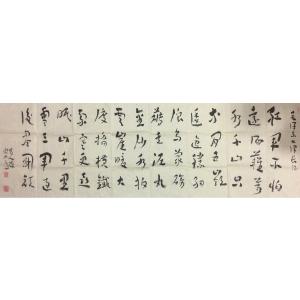 毛泽东七律长征
紅軍不怕
遠征難萬
水千山只
等閒五嶺
逶迤騰細
浪烏蒙磅
礴走泥丸
金沙水拍
雲崖暖大
渡橋橫鐵
索寒更喜
岷山千里
雪三軍過
後盡開顏